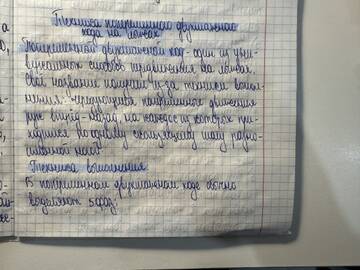 Техника попеременного двухшажного
хода на лыжах
Попеременный двухшажный ход - один из уни-
версальных способов передвижения на лыжах.
Своё название получил из-за техники выпол-
нения: чередующиеся попеременные движения
рук вперёд-назад, на каждое из которых при-
ходится по одному скользящему шагу разно-
имённой ногой.
Техника выполнения
В попеременном двухшажном ходе обычно
выделяют 5 фаз: